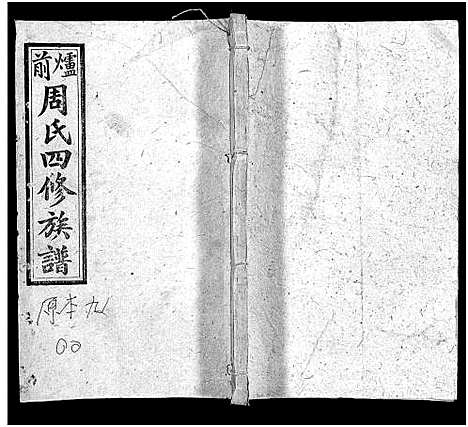 爐前
周氏四修族譜
原本九
00